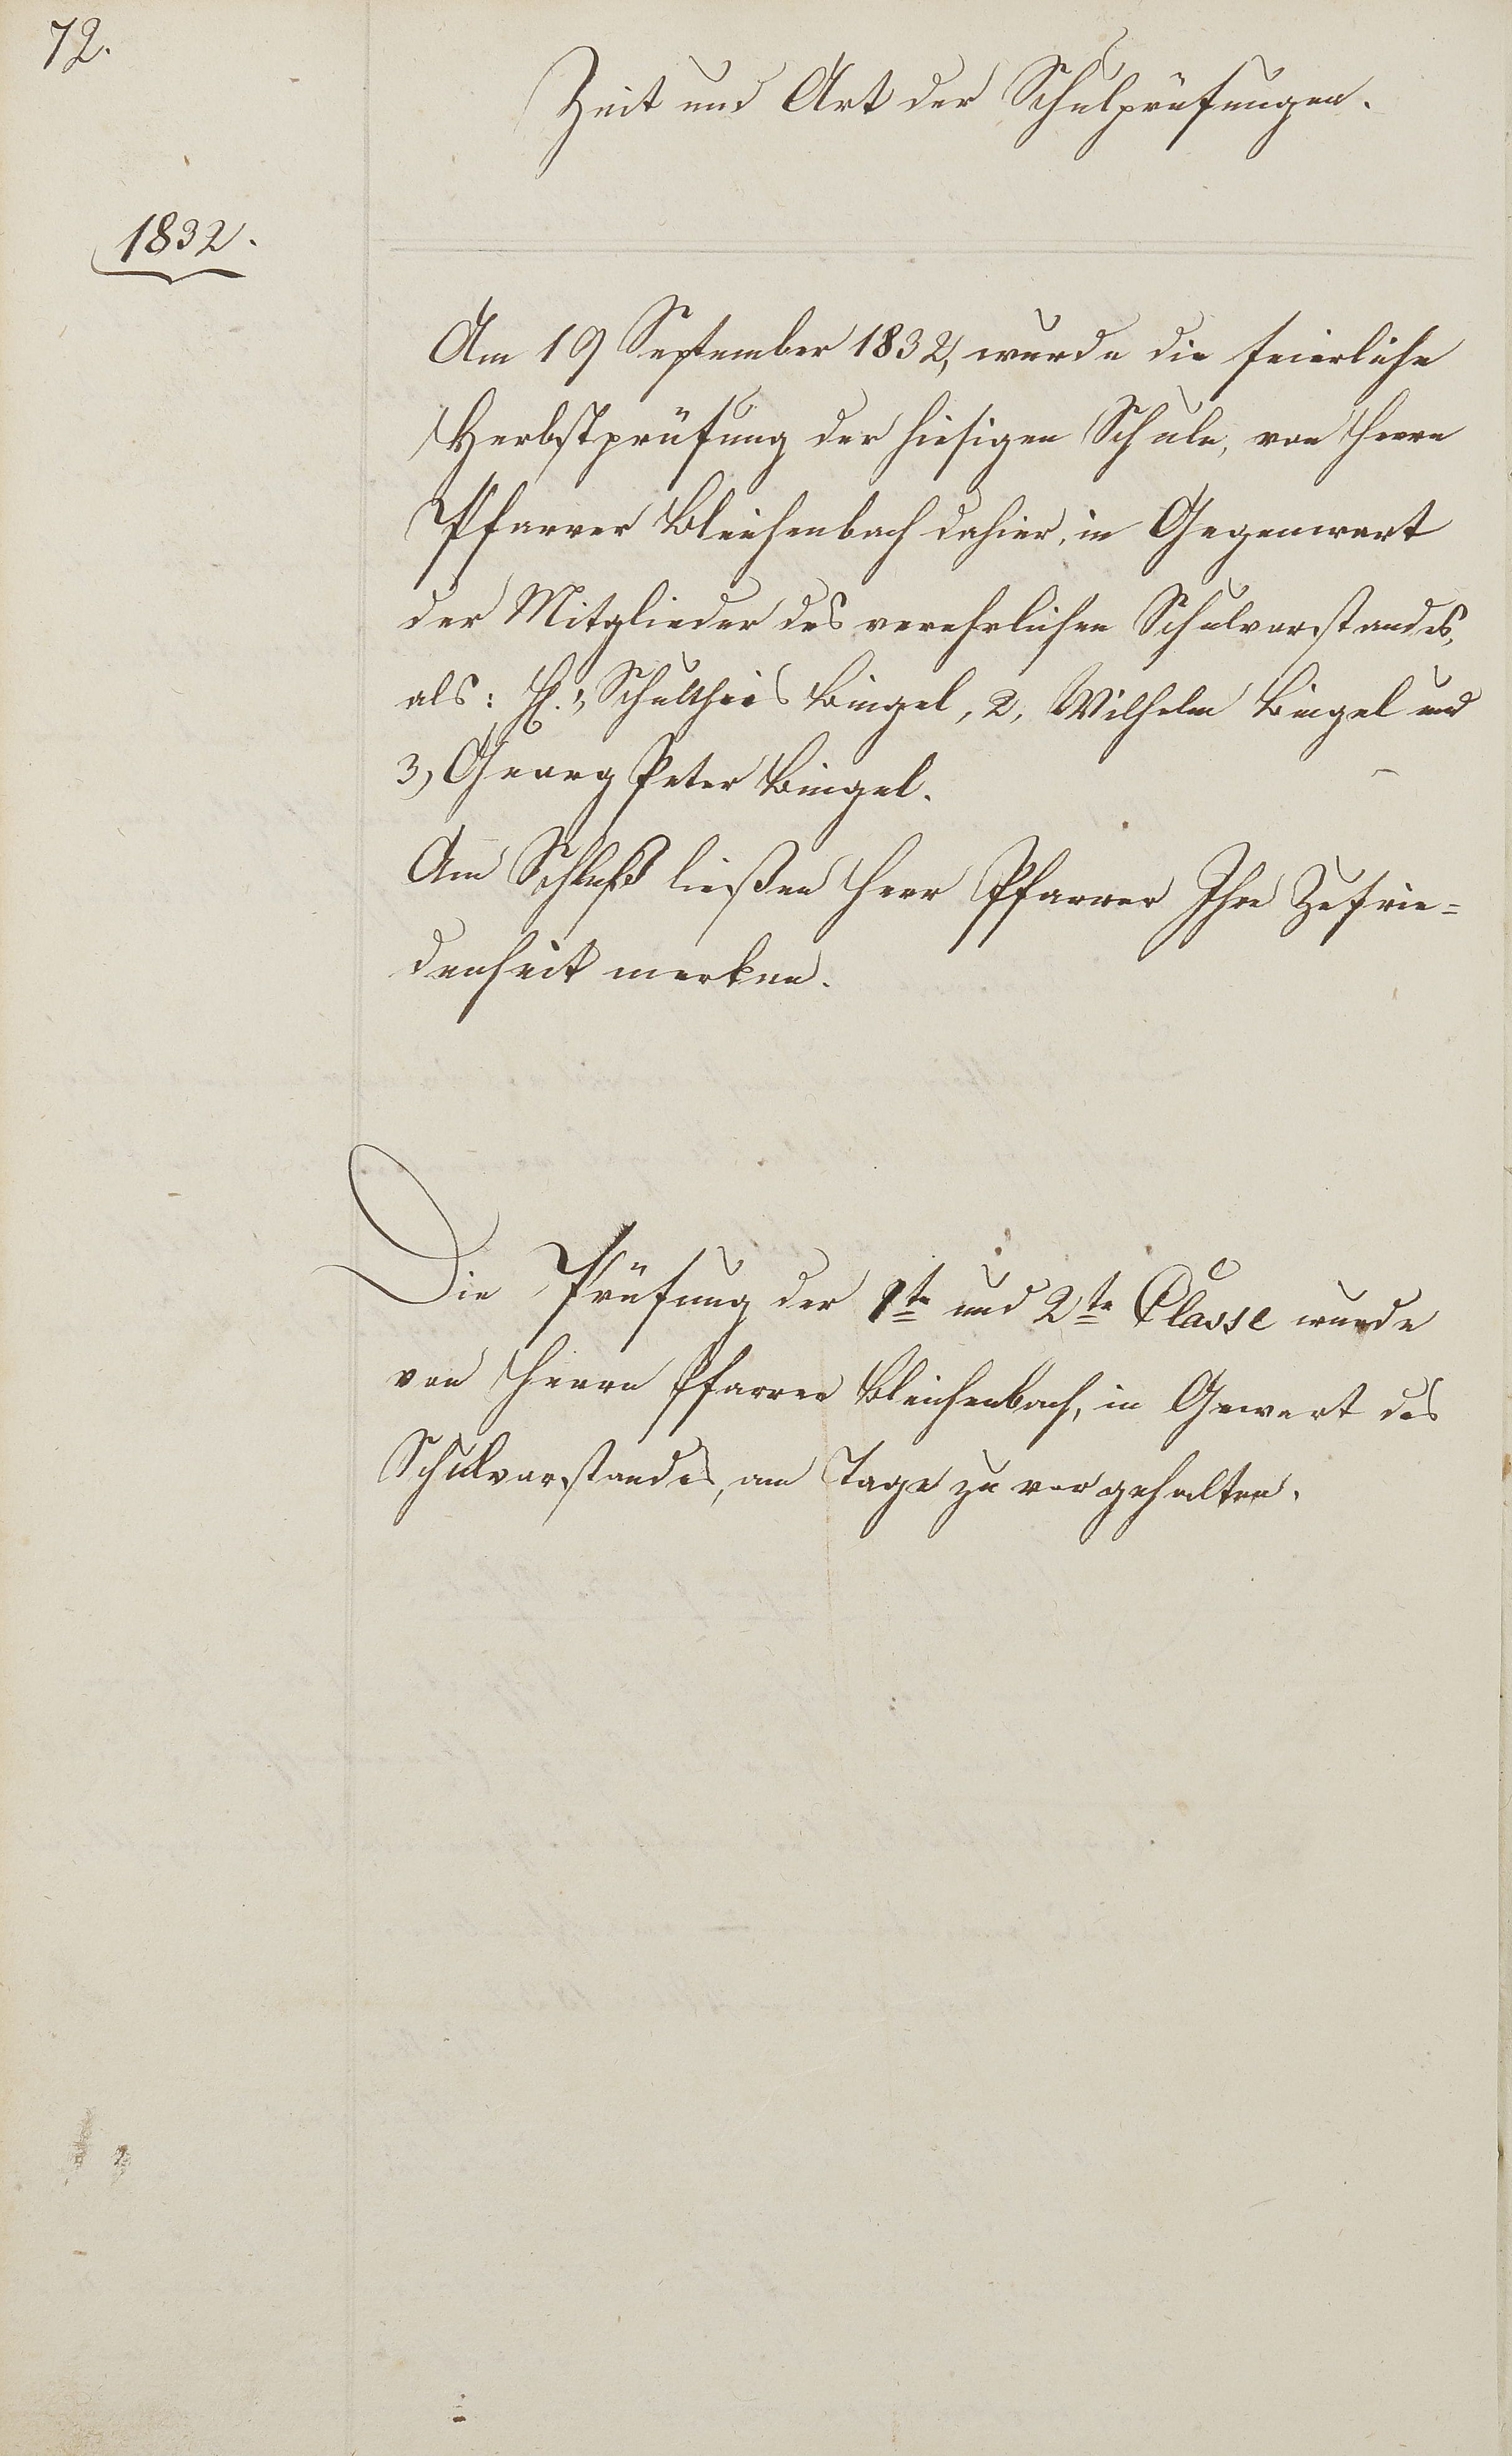 72.
Zeit und Art der Schulprüfungen.
1832.
Am 19 September 1832, wurde die feierliche
Herbstprüfung der hiesigen Schule, von Herrn
Pfarrer Bleichenbach dahier, in Gegenwart
der Mitglieder des verehrlichen Schulvorstandes,
als: H. Schultheis Bingel, 2, Wilhelm Bingel und
3, Georg Peter Bingel.
Am Schluß ließen Herr Pfarrer Ihre Zufrie=
denheit merken.
Die Prüfung der 1te und 2te Classe wurde
von Herrn Pfarrer Bleichenbach, in Gewart des
Schulvorstandes, am Tage zu vor gehalten.